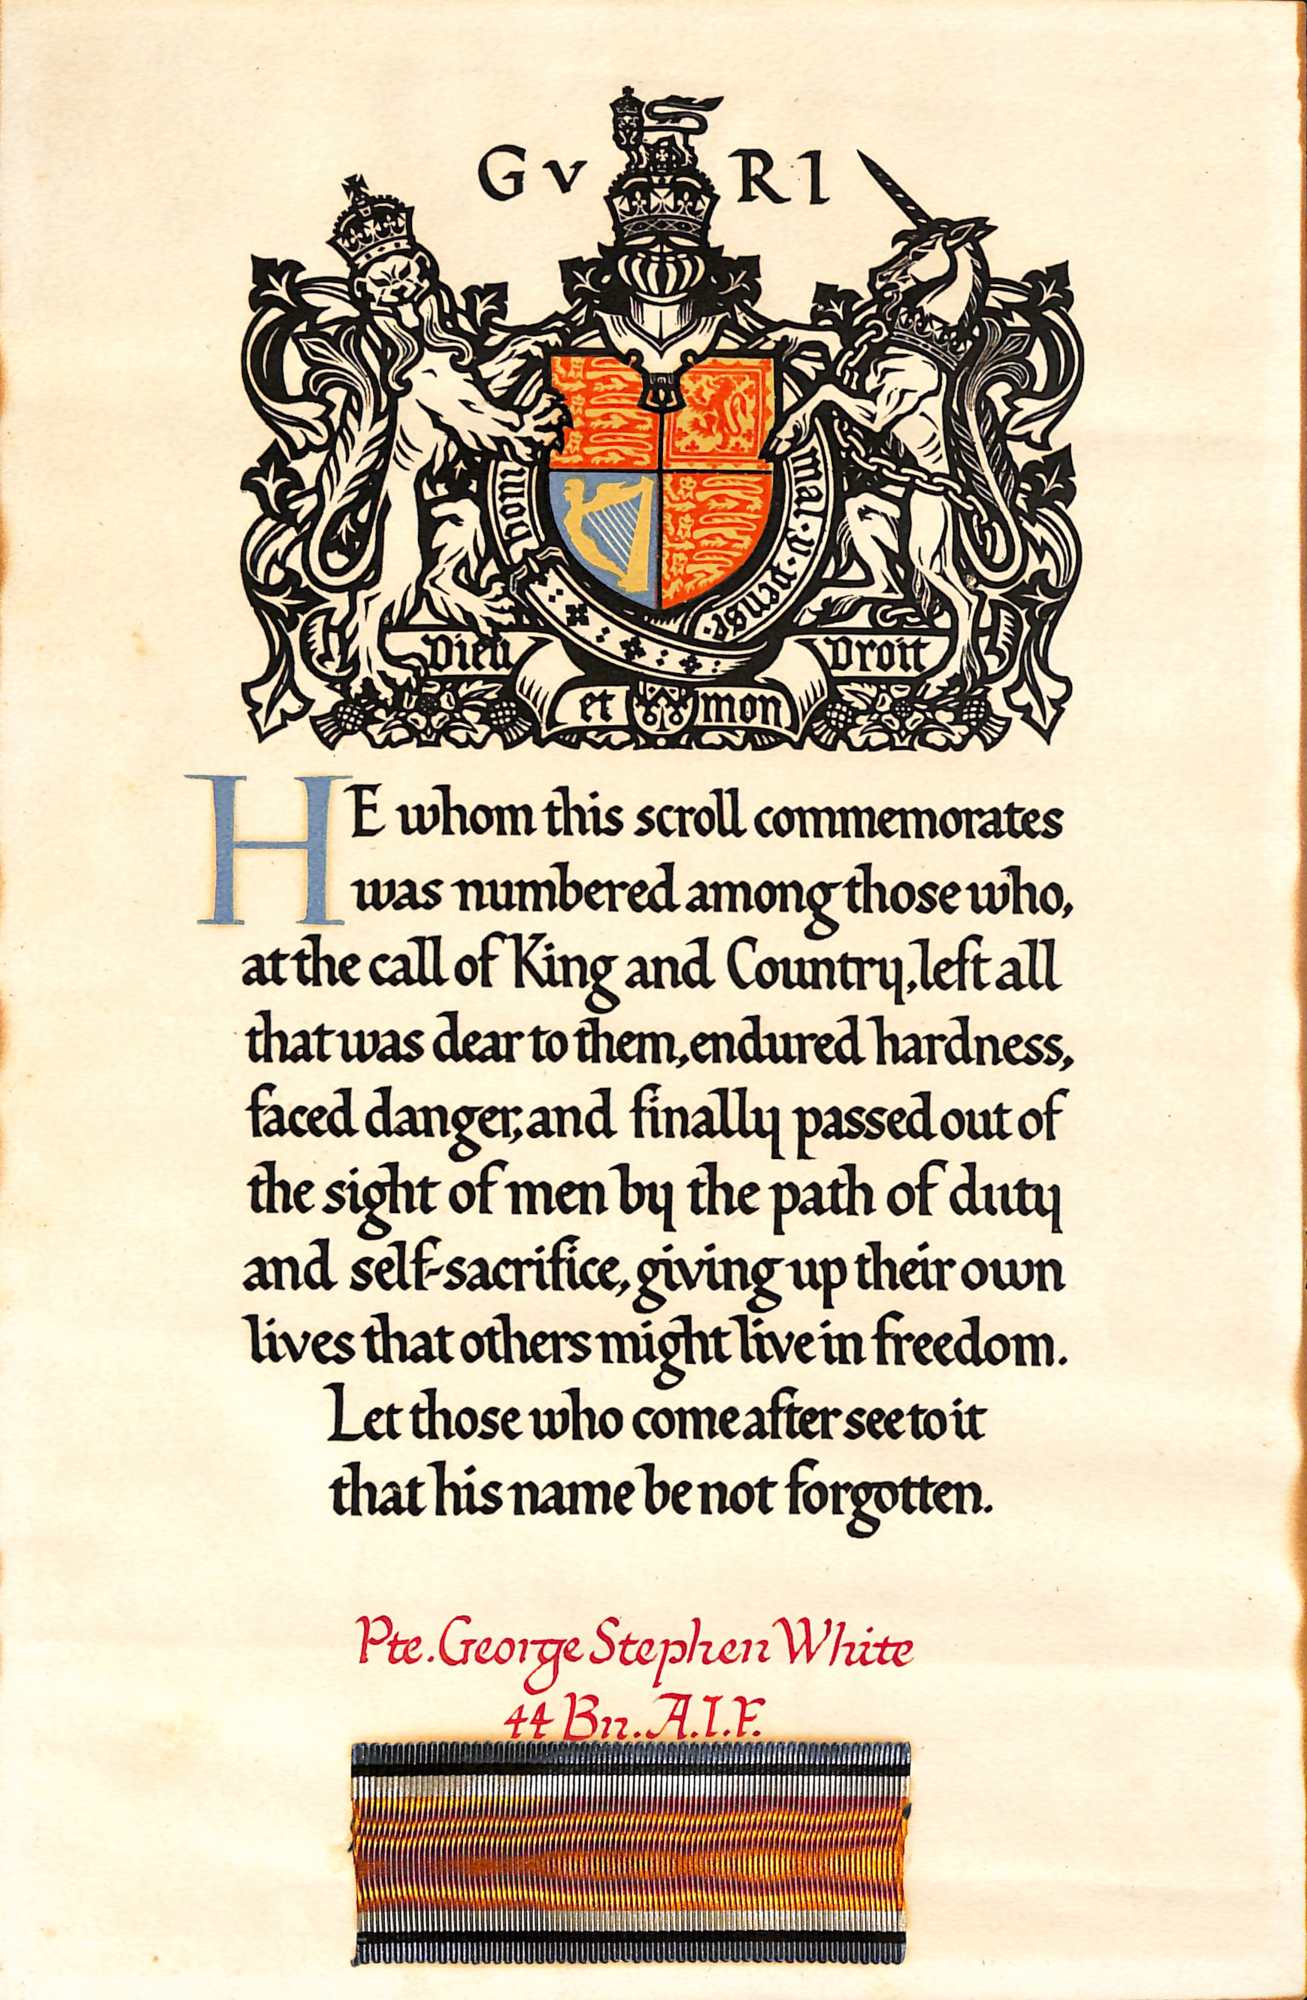 GV RI
honi mal·y·pense·
Dieu Droit
et mon
HE whom this scroll commemorates
was numbered among those who,
at the call of King and Country, left all
that was dear to them, endured hardness,
faced danger, and finally passed out of
the sight of men by the path of duty
and self-sacrifice, giving up their own
lives that others might live in freedom.
Let those who come after see to it
that his name be not forgotten.
Pte. George Stephen White
44 Bn. A.I.F.